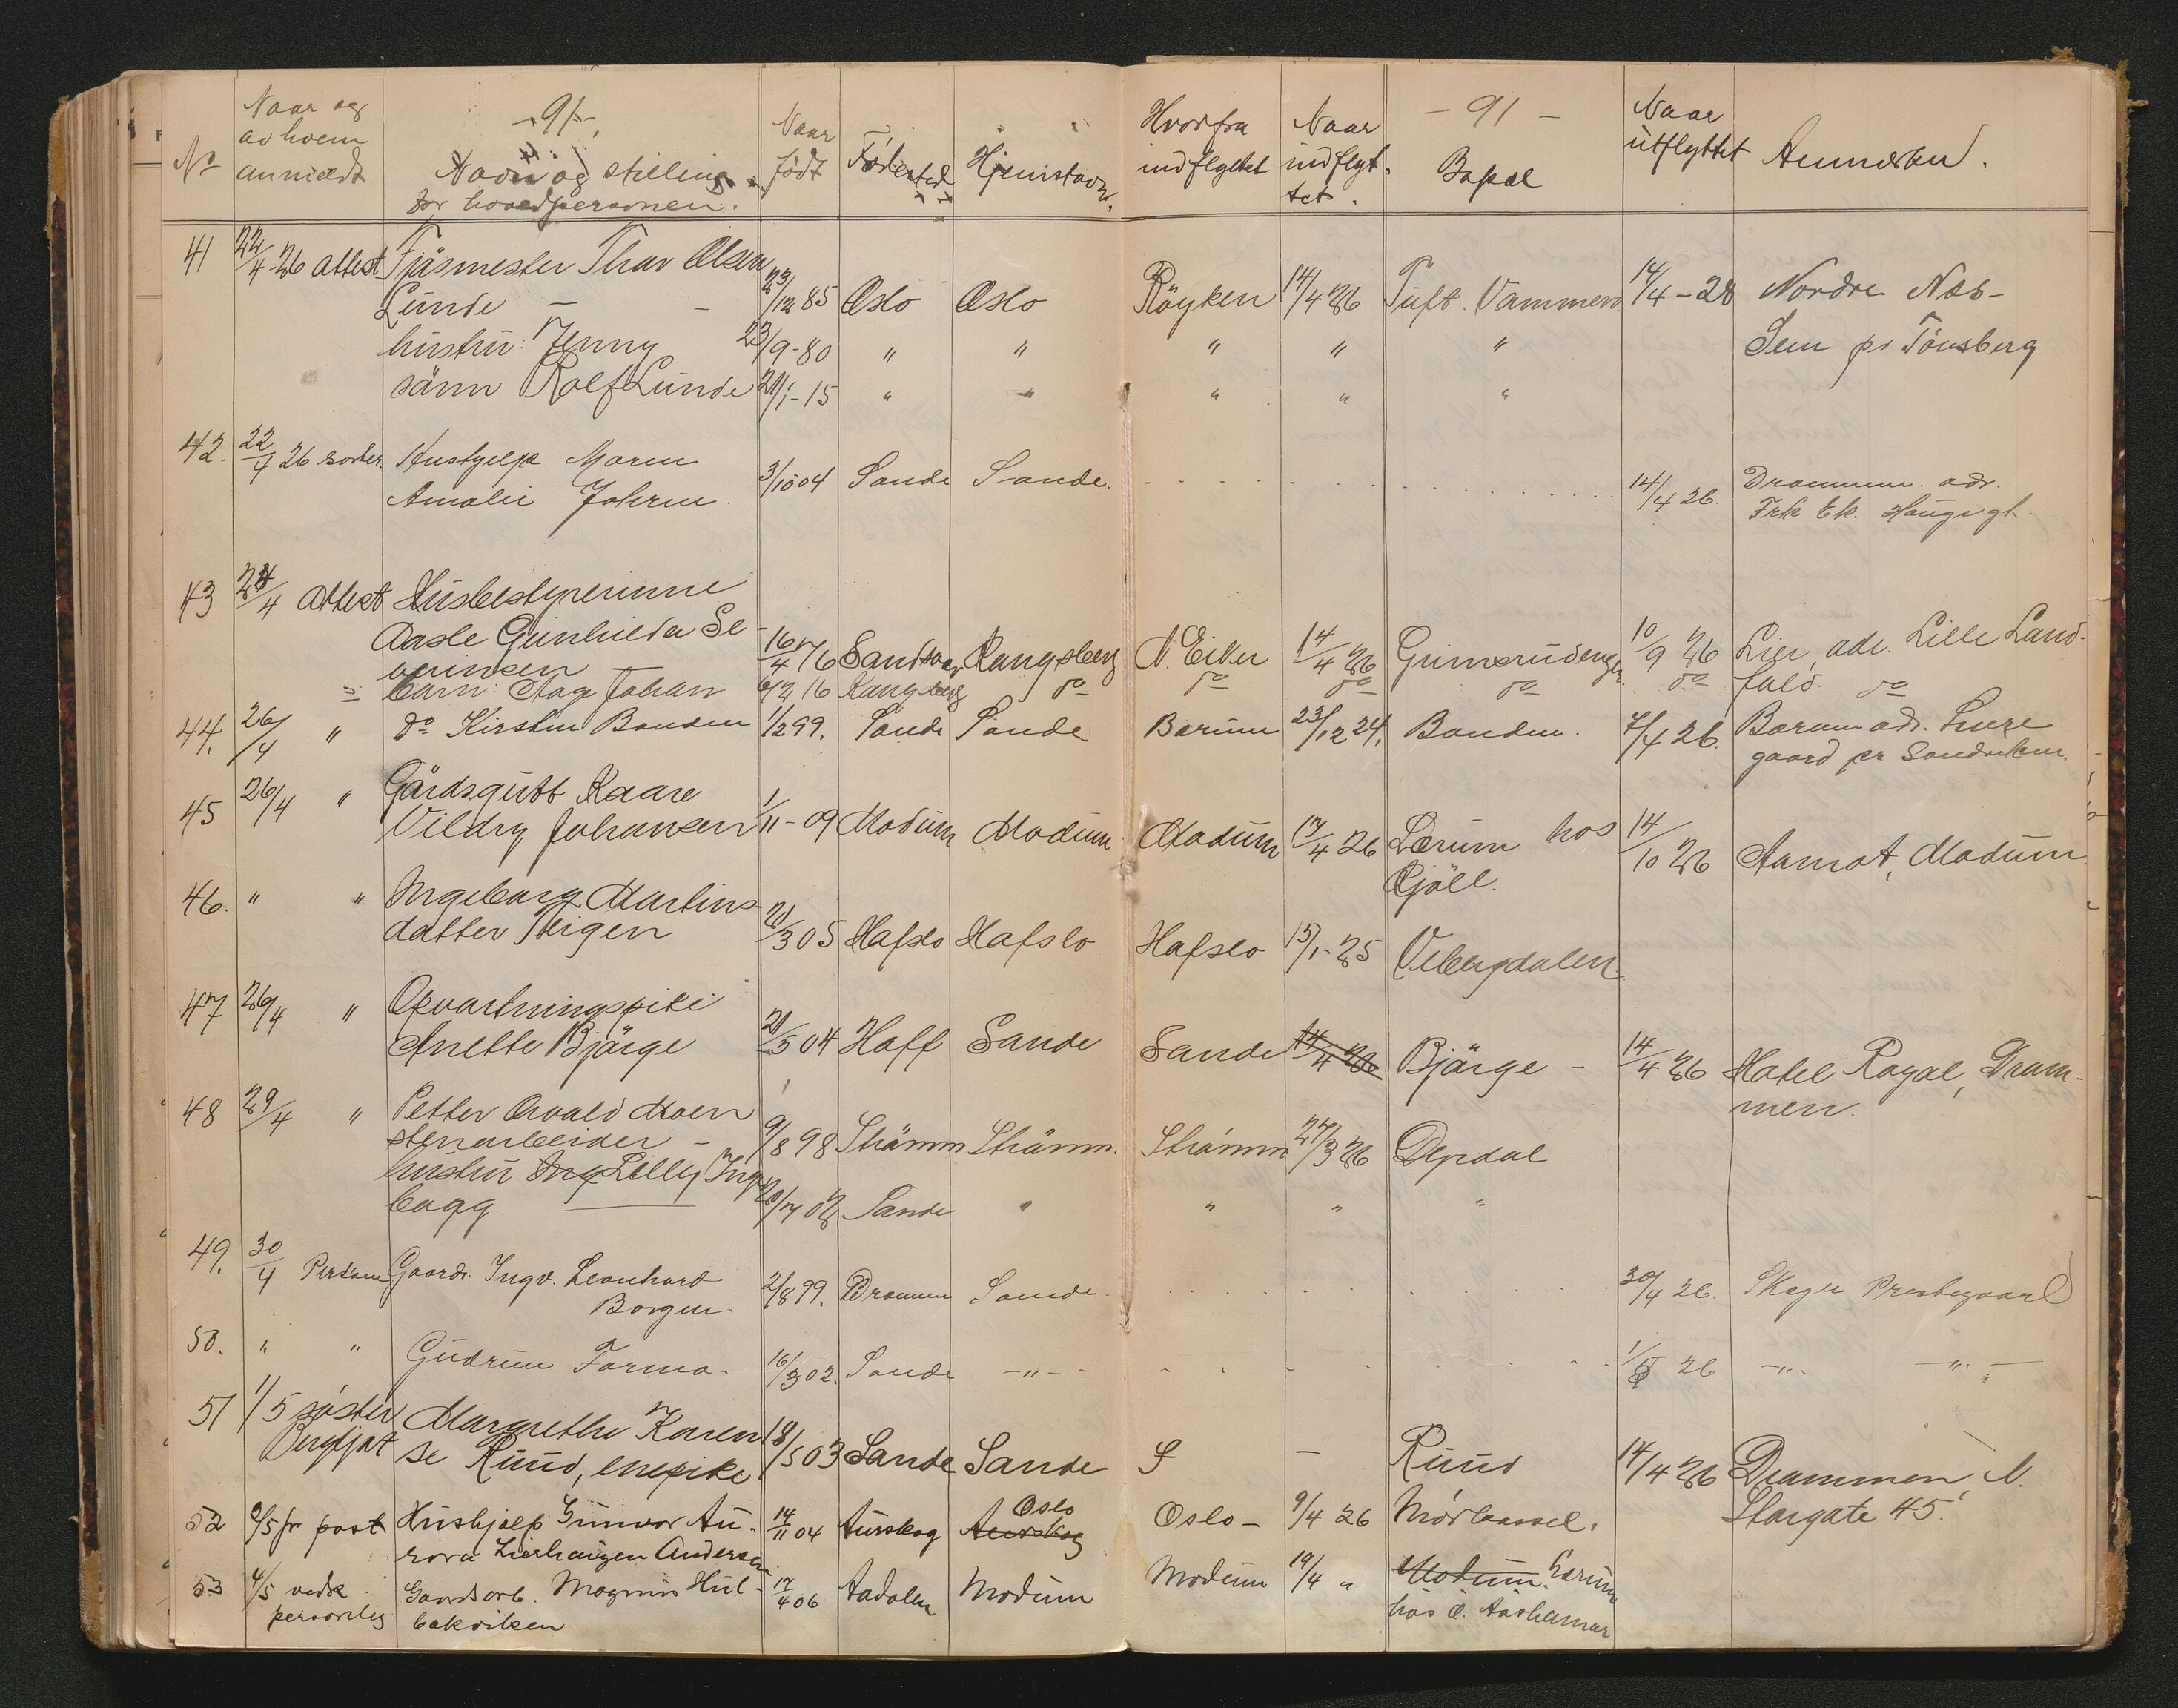 Naar og
av hvem
anmeldt
No
- 91 -
Navn og stilling
for hovedpersonen.
Naar
født
Fødested
Hjemstavn.
Hvorfra
indflyttet
Naar
indflyt-
tet.
- 91 -
Bopæl
Naar
utflyttet
Anmerkn.
41 22/4-26 attest Fjøsmester Thor Olsen
Lunde — - 23/12 85 Oslo Oslo Röyken 14/4 26 Tuft. Vammen 14/4-28 Nordre Næs-
hustru: Jenny 23/9-80 " " " " " Sem pr Tönsberg
sönn Rolf Lunde 21/1-15 " " " " "
42. 22/4 26 Hushjelp Maren
Amalie Johren. 3/10 04 Sande Sande. 14/4 26. Drammen. adr.
Frk Ek. Haugsgt.
43 /4 attest Husbestyrerinne
Aasle Gunhilda Se-
verinsen 16/4 76 Sandsvær Kongsberg N. Eiker 14/4 26 Grimsrudengen 10/9 26 Lier, adr. Lille Land-
= barn: Aag Johan 16 Kongsberg do do do do do fald. do
44. 26/4 " do Kirstin Bonden 1/2 99. Sande Sande Bærum 23/12 24. Bonden. 7/4 26. Bærum adr.
gaard pr Sandviken.
45 26/4 " Gårdsgutt Kaare
Vildry Johansen 1/11-09 Modum Modum Modum 17/4 26 Lærum hos 14/10 26 Aamot, Modum
Kjöll.
46. " " Ingeborg Martins-
datter Teigen 21/3 05 Hafslo Hafslo Hafslo 15/1-25 Vebergdalen
47 26/4 " Opvartningspike
Anette Bjørge 21/5 04 Hoff Sande Sande 14/4 26 Bjørge - 14/4 26 Hotel Royal, Dram-
men.
48 29/4 " Petter Osvald Moen
stenarbeider - 9/8 98 Strömm Strömm. Strömm 27/3 26 Depdal
hustru Ing Lilly Inge-
borg 20/7 02 Sande " " " "
49. 30/4 Person Gaardr. Ingv. Leonhard
Borgen. 2/8 99. Drammen Sande. 30/4 26. Skoger Prestegaard
50. " " Gudrun Formo. 16/3 02. Sande -"- 1/5 26 -"- -"-
51 1/5 söster Margrethe Karen
Bergljot se Ruud, enepike 18/5 03 Sande Sande S - Ruud 14/4 26 Drammen, N.
Storgate 45.
52 2/5 pr post Hushjælp Gunvor Au- 14/11 04 Aurskog Aurskog Oslo Oslo - 9/4 26 Mörlassel.
rora Lierhaugen Andersen
53 4/5 vedk Gaardsarb. Magnus Hul- 17/4 06 Aadalen Modum Modum 19/4 " Modum. Lærum
personlig bakviken hos O. Aashamar